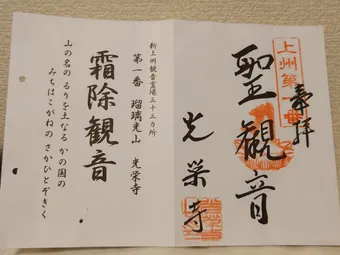 奉拝
上州第一番
聖観音
光栄寺
新上州観音霊場三十三カ所
第一番 瑠璃光山 光栄寺
霜除観音
山の名の るりを土なる かの国の
みちはこがねの さかひとぞきく